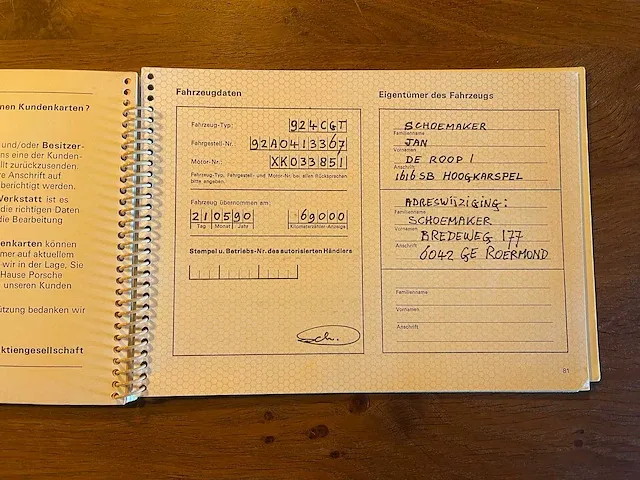 nen Kundenkarten?
und/oder Besitzer-
ns eine der Kunden-
llt zurückzusenden.
re Anschrift auf
berichtigt werden.
Werkstatt ist es
die richtigen Daten
die Bearbeitung
enkarten können
mer auf aktuellem
wir in der Lage, Sie
Hause Porsche
unseren Kunden
tzung bedanken wir
ktiengesellschaft
Fahrzeugdaten
Fahrzeug-Typ: 924CGT
Fahrgestell-Nr. 92A0413367
Motor-Nr.: XK033851
Fahrzeug-Typ, Fahrgestell- und Motor-Nr. bei allen Rücksprachen
bitte angeben.
Fahrzeug übernommen am:
210590 69000
Tag Monat Jahr Kilometerzähler-Anzeige
Stempel u. Betriebs-Nr. des autorisierten Händlers
Sch.
Eigentümer des Fahrzeugs
SCHOEMAKER
Familienname
JAN
Vornamen
DE ROOP 1
Anschrift
1616 SB HOOGKARSPEL
ADRESWIJZIGING:
Familienname
SCHOEMAKER
Vornamen
BREDEWEG 177
Anschrift
6042 GE ROERMOND
Familienname
Vornamen
Anschrift
81